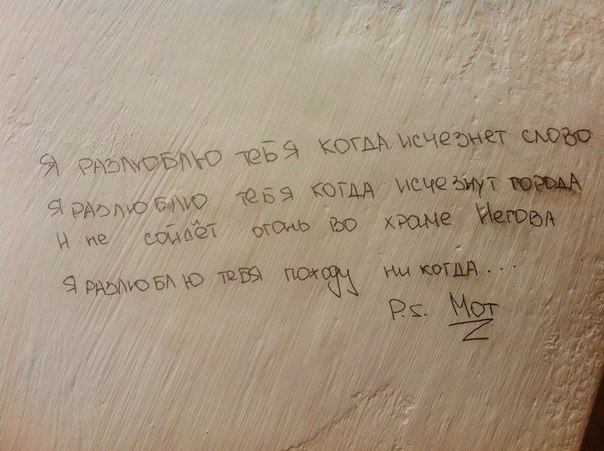 Я РАЗЛЮБЛЮ ТЕБЯ КОГДА ИСЧЕЗНЕТ СЛОВО
Я РАЗЛЮБЛЮ ТЕБЯ КОГДА ИСЧЕЗНУТ ГОРОДА
И НЕ СОЙДЁТ ОГОНЬ ВО ХРАМЕ ИЕГОВА
Я РАЗЛЮБЛЮ ТЕБЯ ПОХОДУ НИ КОГДА...
P.s. Мот